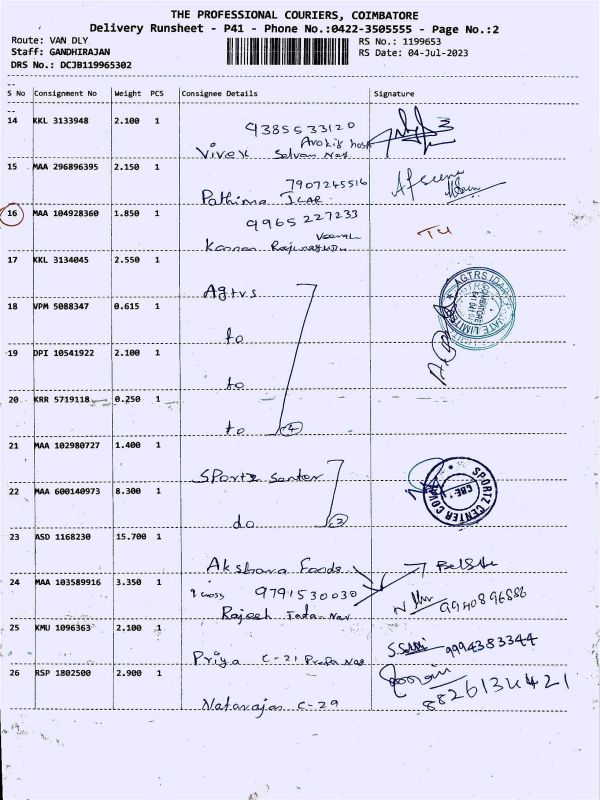 THE PROFESSIONAL COURIERS, COIMBATORE
Delivery Runsheet - P41 - Phone No.:0422-3505555 - Page No.:2
Route: VAN DLY
RS No.: 1199653
Staff: GANDHIRAJAN
RS Date: 04-Jul-2023
DRS No.: DCJB119965302
S No Consignment No Weight PCS Consignee Details Signature
14 KKL 3133948 2.100 1
9385533120
Vivek Selvam Nag
15 MAA 296896395 2.150 1
7907245516
Pathima ICAR
Afseena
16 MAA 104928360 1.850 1
9965 227233
17 KKL 3134045 2.550 1
Agtrs
18 VPM 5088347 0.615 1
to
19 DPI 10541922 2.100 1
to
20 KRR 5719118 0.250 1
to 4
21 MAA 102980727 1.400 1
Sportz Senter
22 MAA 600140973 8.300 1
SPORTZ CENTER
CBE
do 2
23 ASD 1168230 15.700 1
Akshara Foods
24 MAA 103589916 3.350 1
9791530030
Rajesh Tata Nag
9940896886
25 KMU 1096363 2.100 1
Priya C-21
9994383344
26 RSP 1802500 2.900 1
Natarajan C-29